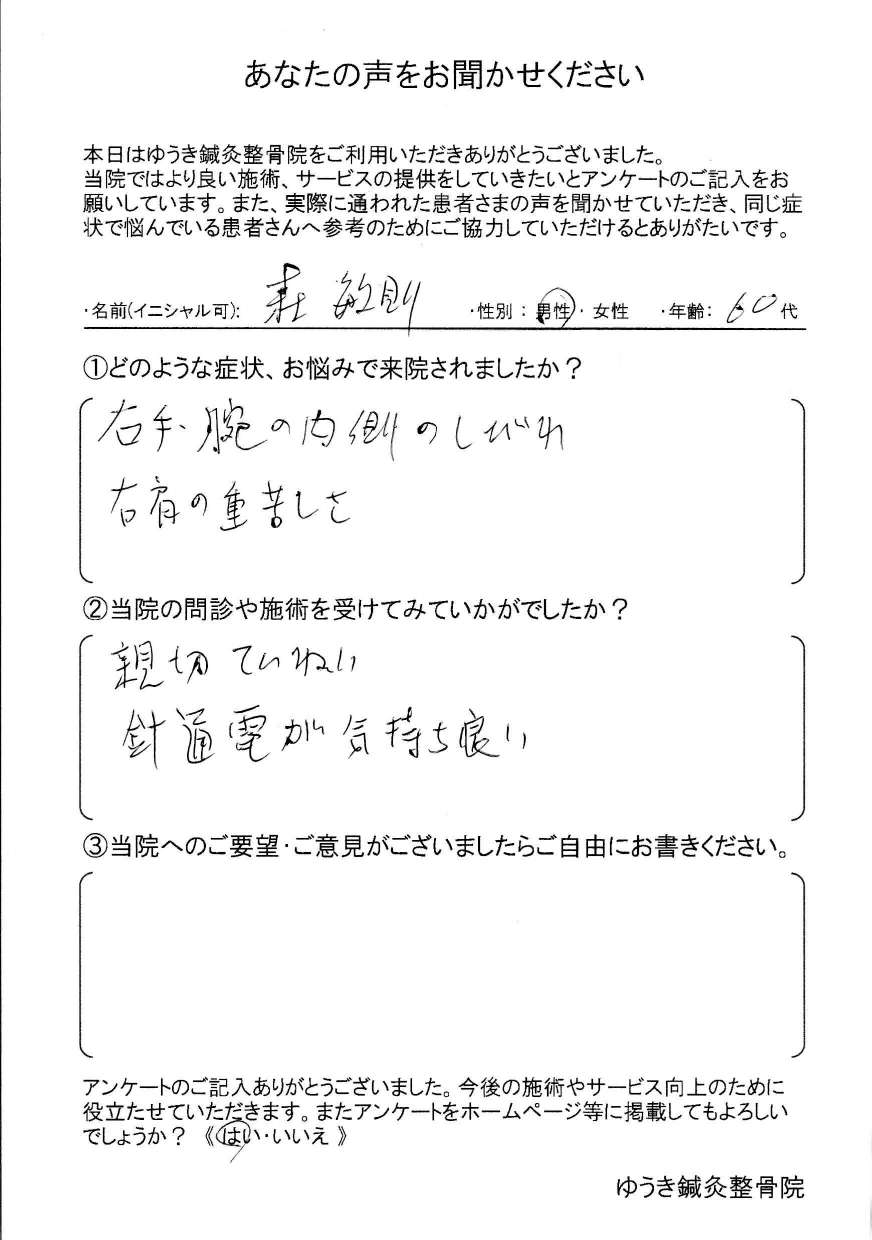 あなたの声をお聞かせください
本日はゆうき鍼灸整骨院をご利用いただきありがとうございました。
当院ではより良い施術、サービスの提供をしていきたいとアンケートのご記入をお
願いしています。また、実際に通われた患者さまの声を聞かせていただき、同じ症
状で悩んでいる患者さんへ参考のためにご協力していただけるとありがたいです。
・名前(イニシャル可): 敏則 ・性別：男性・女性 ・年齢：60代
①どのような症状、お悩みで来院されましたか？
右手・腕の内側のしびれ
右肩の重苦しさ
②当院の問診や施術を受けてみていかがでしたか？
親切ていねい
針通電が気持ち良い
③当院へのご要望・ご意見がございましたらご自由にお書きください。
アンケートのご記入ありがとうございました。今後の施術やサービス向上のために
役立たせていただきます。またアンケートをホームページ等に掲載してもよろしい
でしょうか？《はい・いいえ》
ゆうき鍼灸整骨院